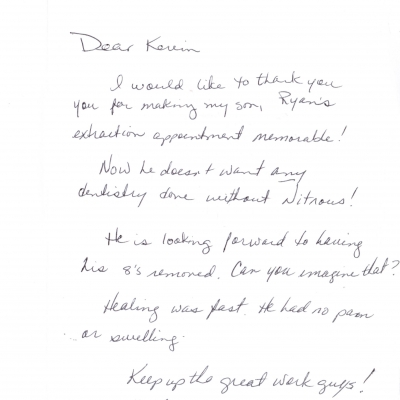 Dear Kevin
I would like to thank you
you for making my son, Ryan's
extraction appointment memorable!
Now he doesn't want any
dentistry done without Nitrous!
He is looking forward to having
his 8's removed. Can you imagine that?
Healing was fast. He had no pain
or swelling.
Keep up the great work guys!